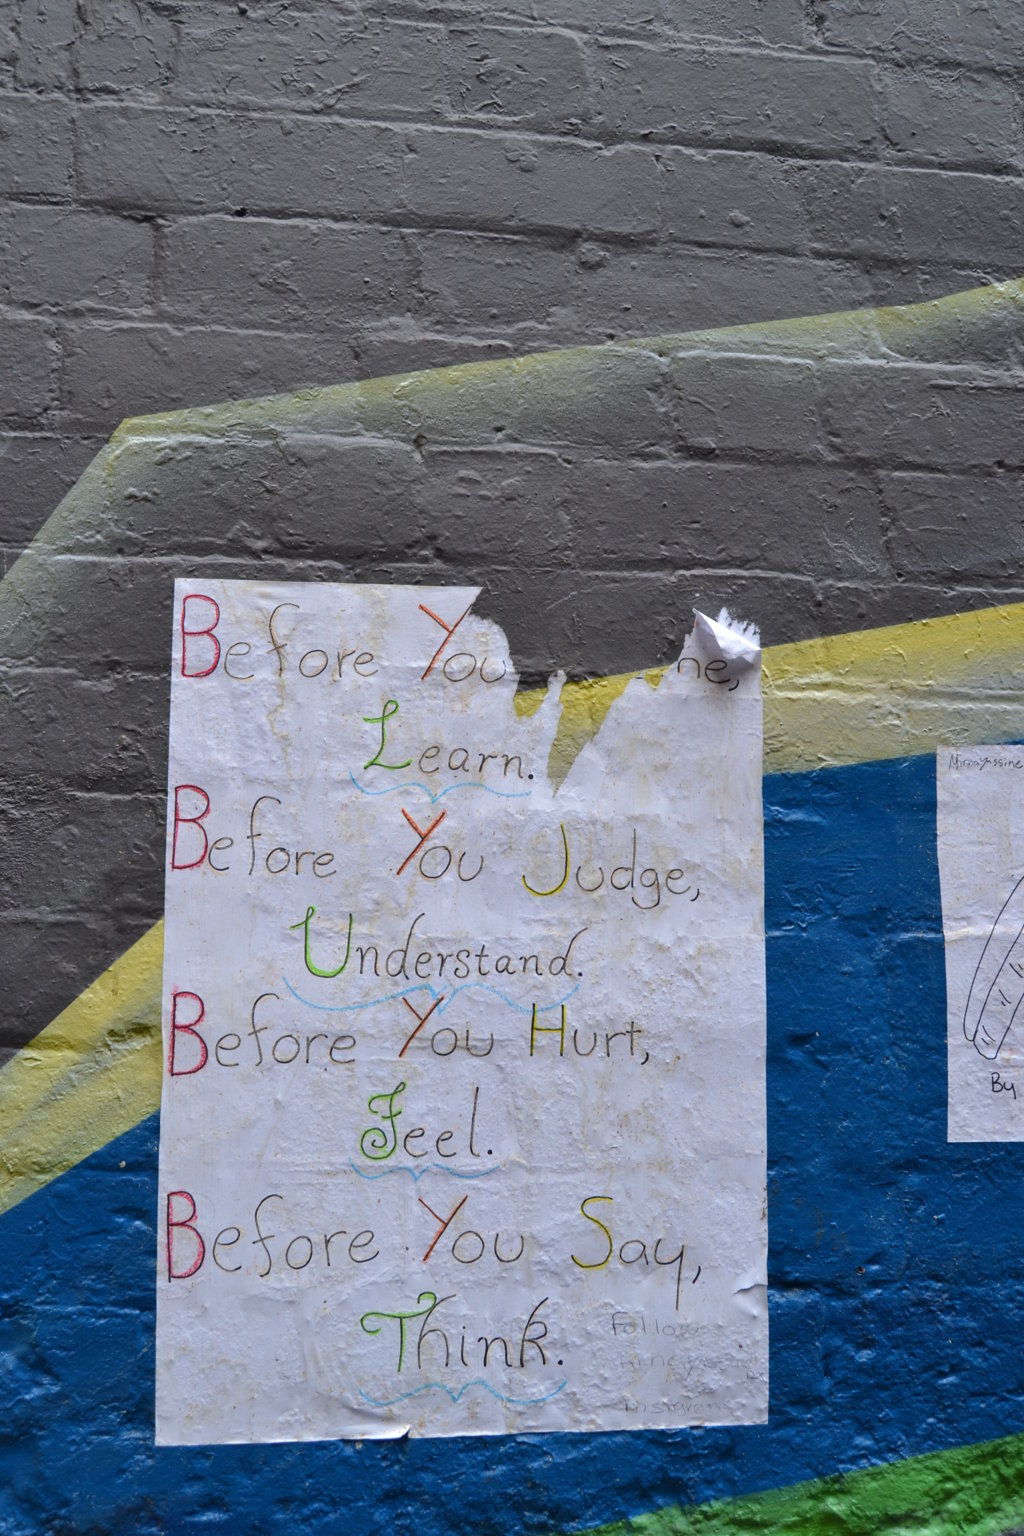 Before You ne,
Learn.
Before You Judge,
Understand.
Before You Hurt,
Feel.
Before You Say,
Think.
Follow
By